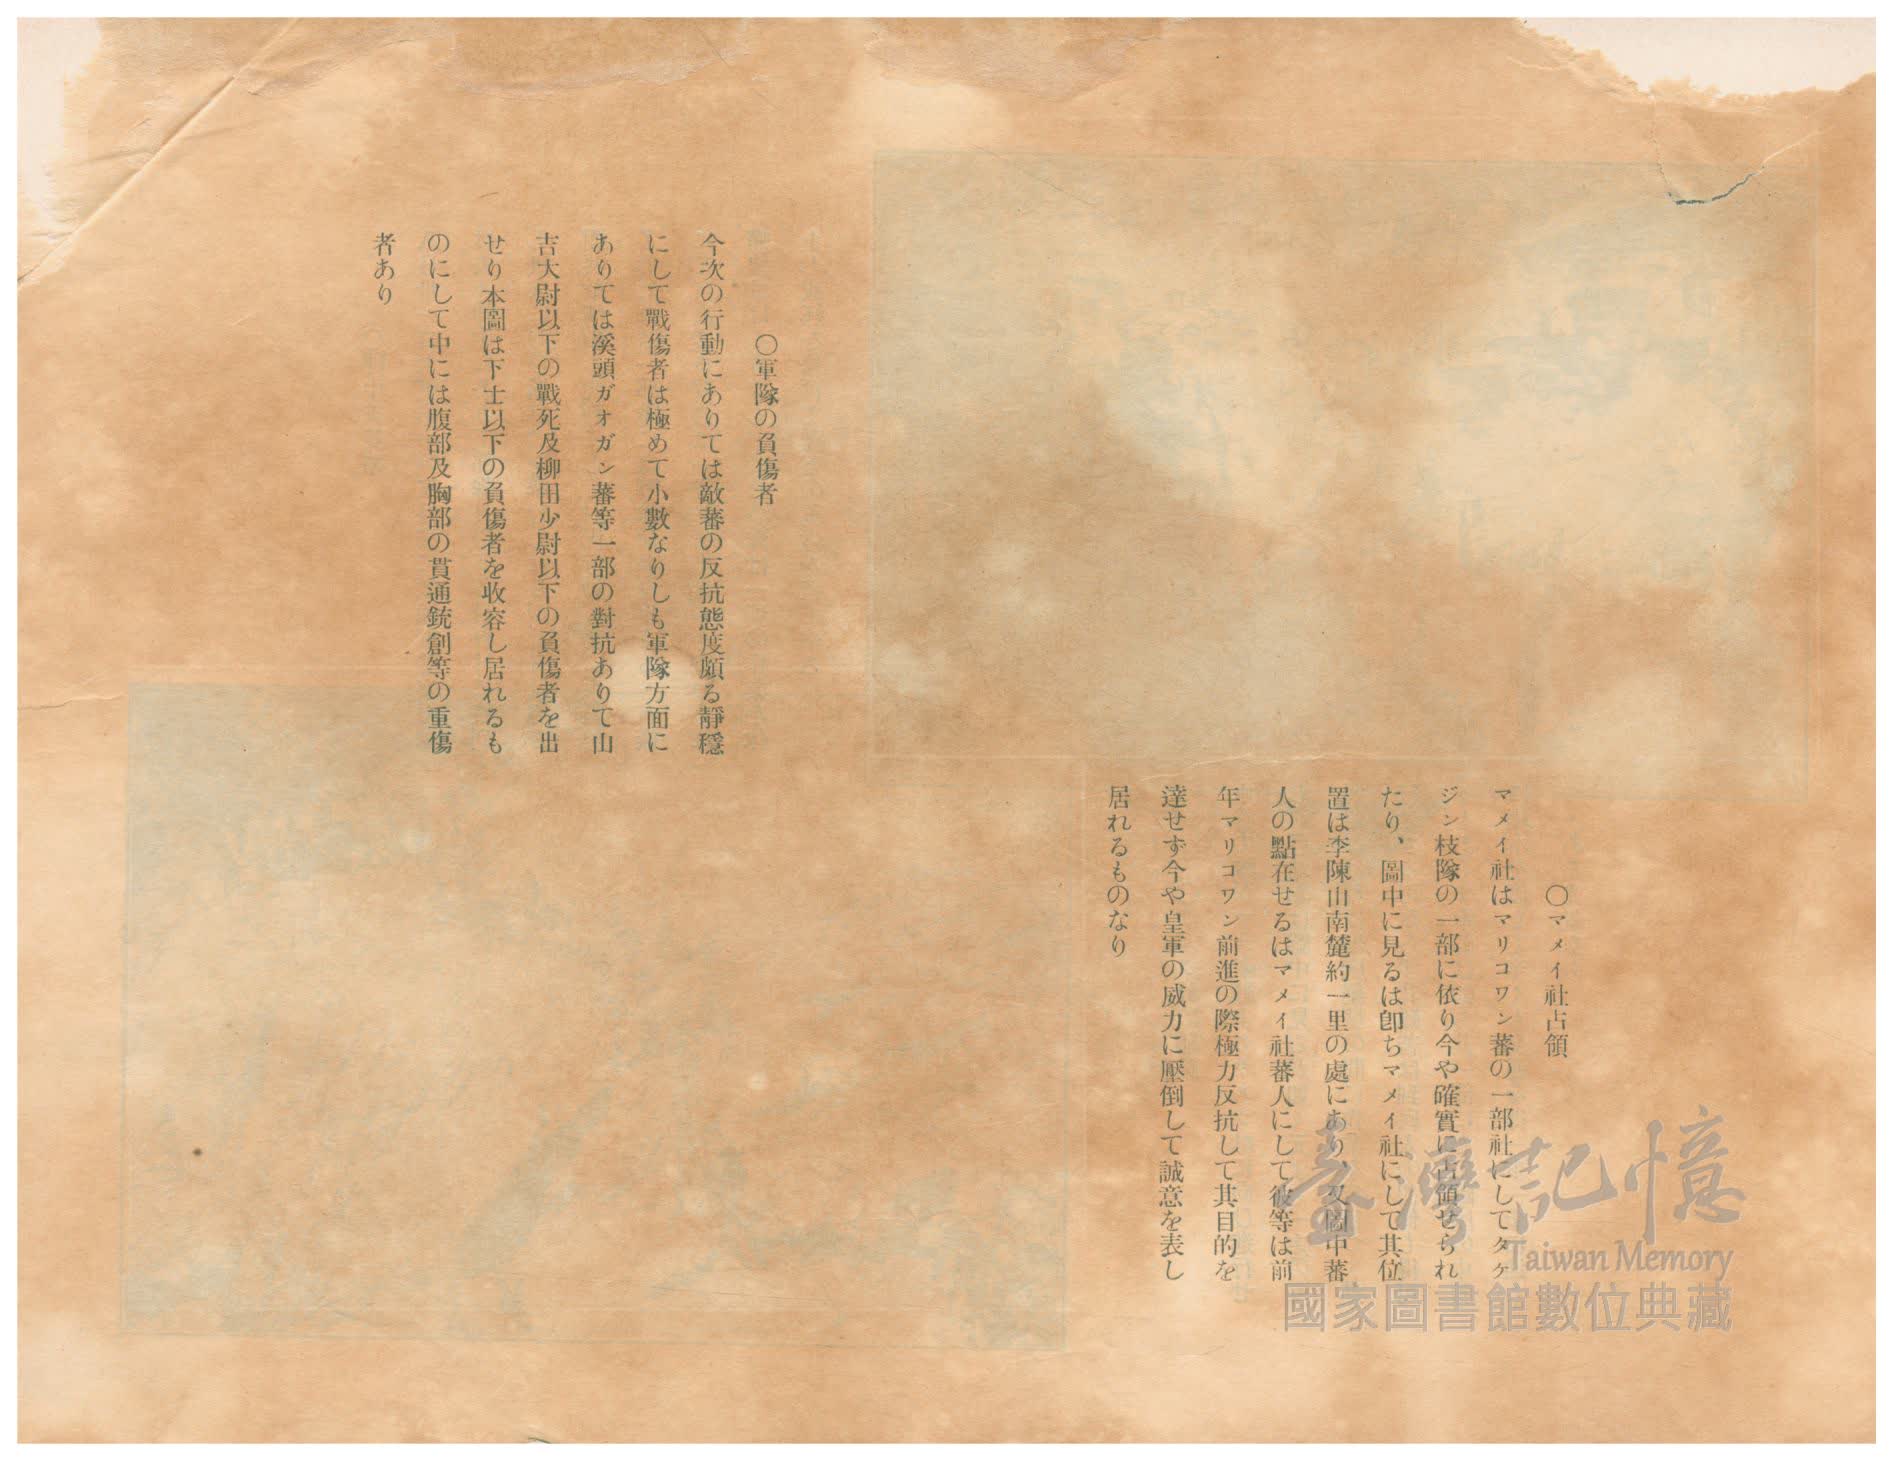 〇マメイ社占領
マメイ社はマリコワン蕃の一部社にしてタケ
ジン枝隊の一部に依り今や確實に占領せられ
たり、圖中に見るは卽ちマメイ社にして其位
置は李陳山南麓約一里の處にあり、又圖中蕃
人の點在せるはマメイ社蕃人にして彼等は前
年マリコワン前進の際極力反抗して其目的を
達せず今や皇軍の威力に壓倒して誠意を表し
居れるものなり
〇軍隊の負傷者
今次の行動にありては敵蕃の反抗態度頗る靜穩
にして戰傷者は極めて小數なりしも軍隊方面に
ありては溪頭ガオガン蕃等一部の對抗ありて山
吉大尉以下の戰死及柳田少尉以下の負傷者を出
せり本圖は下士以下の負傷者を收容し居れるも
のにして中には腹部及胸部の貫通銃創等の重傷
者あり
臺灣記憶
Taiwan Memory
國家圖書館數位典藏